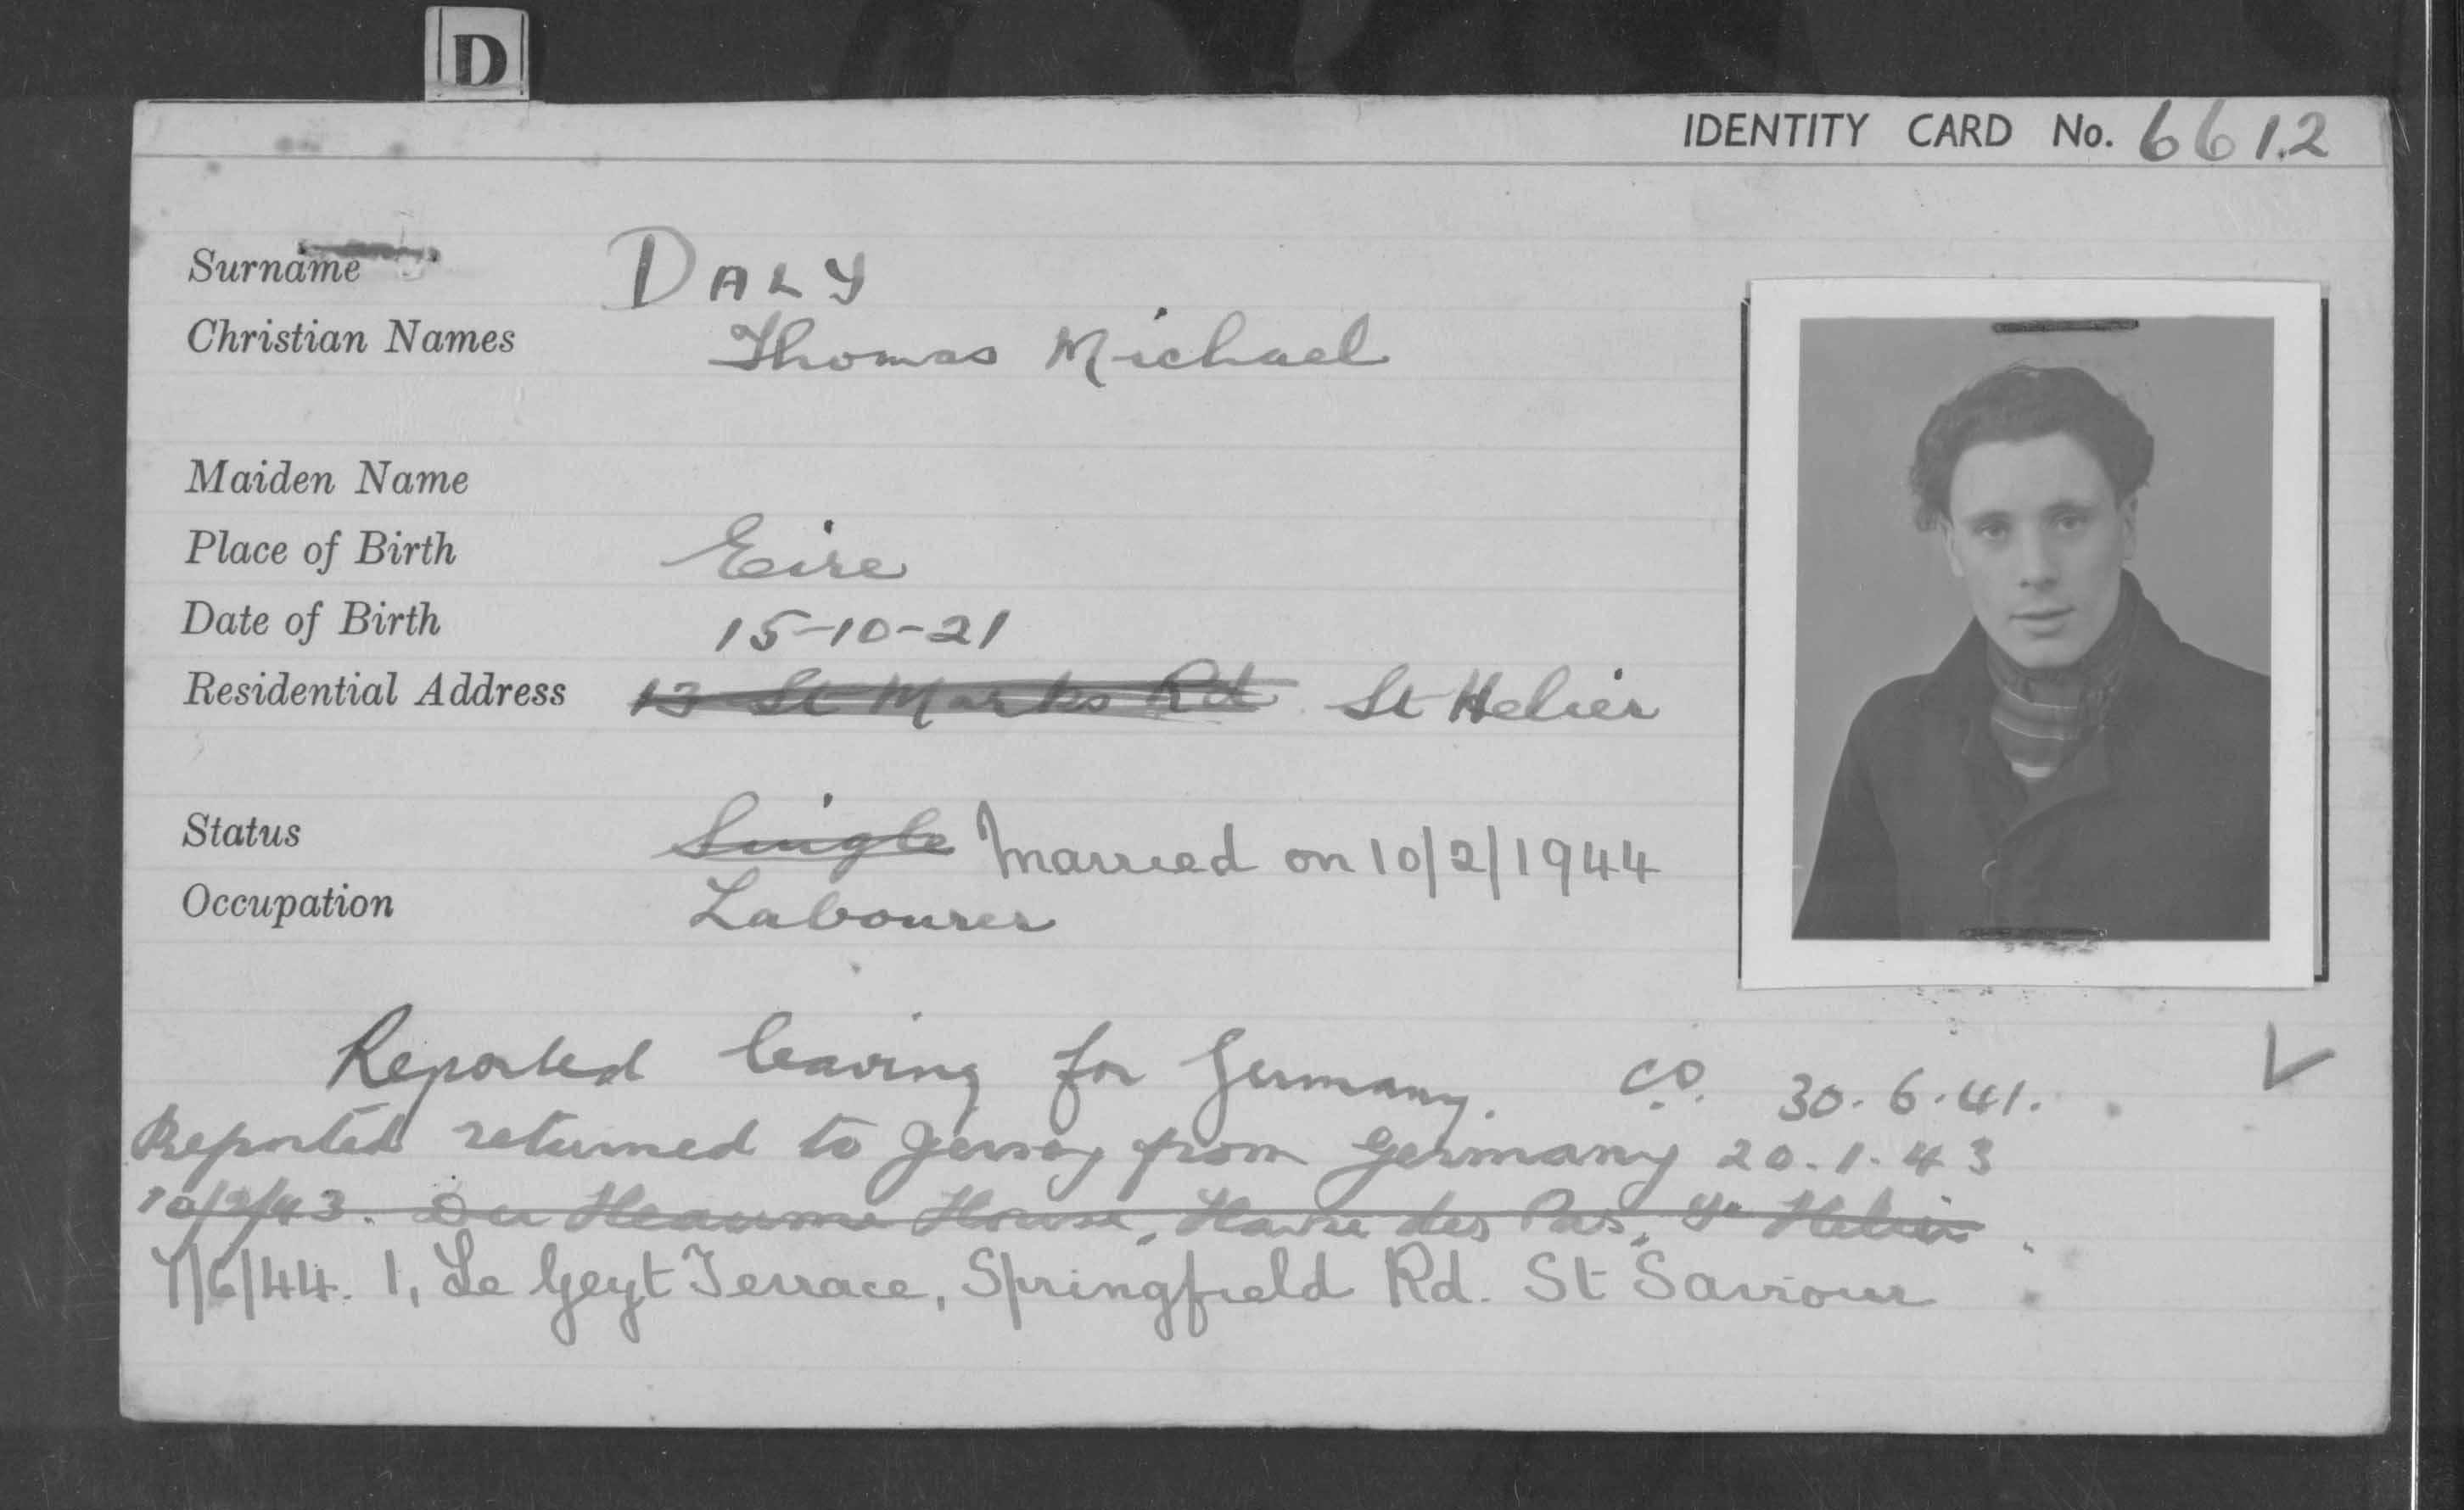 D
IDENTITY CARD No. 6612
Surname DALY
Christian Names Thomas Michael
Maiden Name
Place of Birth Eire
Date of Birth 15-10-21
Residential Address 13 St Marks Rd St Helier
Status Single Married on 10/2/1944
Occupation Labourer
Reported leaving for Germany. C.O. 30.6.41.
Reported returned to Jersey from Germany 20.1.43
10/2/43. Du Heaume House, Havre des Pas, St Helier.
7/6/44. 1, Le Geyt Terrace, Springfield Rd. St Saviour